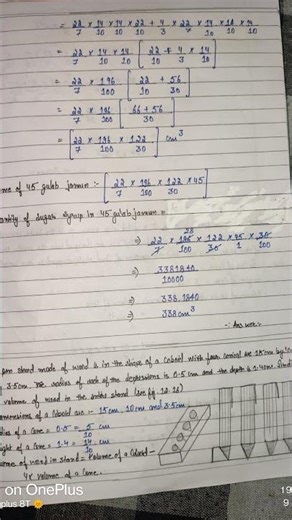 = 22/7 × 14/10 × 14/10 × 22/10 + 4/3 × 22/7 × 14/10 × 14/10 × 14/10
= 22/7 × 14/10 × 14/10 [ 22/10 + 4/3 × 14/10 ]
= 22/7 × 196/100 [ 22/10 + 56/30 ]
= 22/7 × 196/100 [ 66 + 56/30 ]
= [ 22/7 × 196/100 × 122/30 ] cm³
me of 45 gulab jamun :- [ 22/7 × 196/100 × 122/30 × 45 ]
antity of sugar syrup in 45 gulab jamun =
⇒ 22/7 × 196/100 × 122/30 × 45/1 × 30/100
28
⇒ 3381840/10000
⇒ 338.1840
⇒ 338 cm³
Answer.
pen stand made of wood is in the shape of a cuboid with four conical are 15 cm by
3.5 cm. The radius of each of the depressions is 0.5 cm and the depth is 1.4 cm. Find
volume of wood in the entire stand (see fig.
imensions of cuboid are - 15cm, 10cm and 3.5cm
dius of a cone = 0.5 = 5/10 cm
ight of a cone = 1.4 = 14/10 cm
ume of wood in stand = volume of a cuboid -
4 × volume of a cone.
on OnePlus
plus 8T
19
9